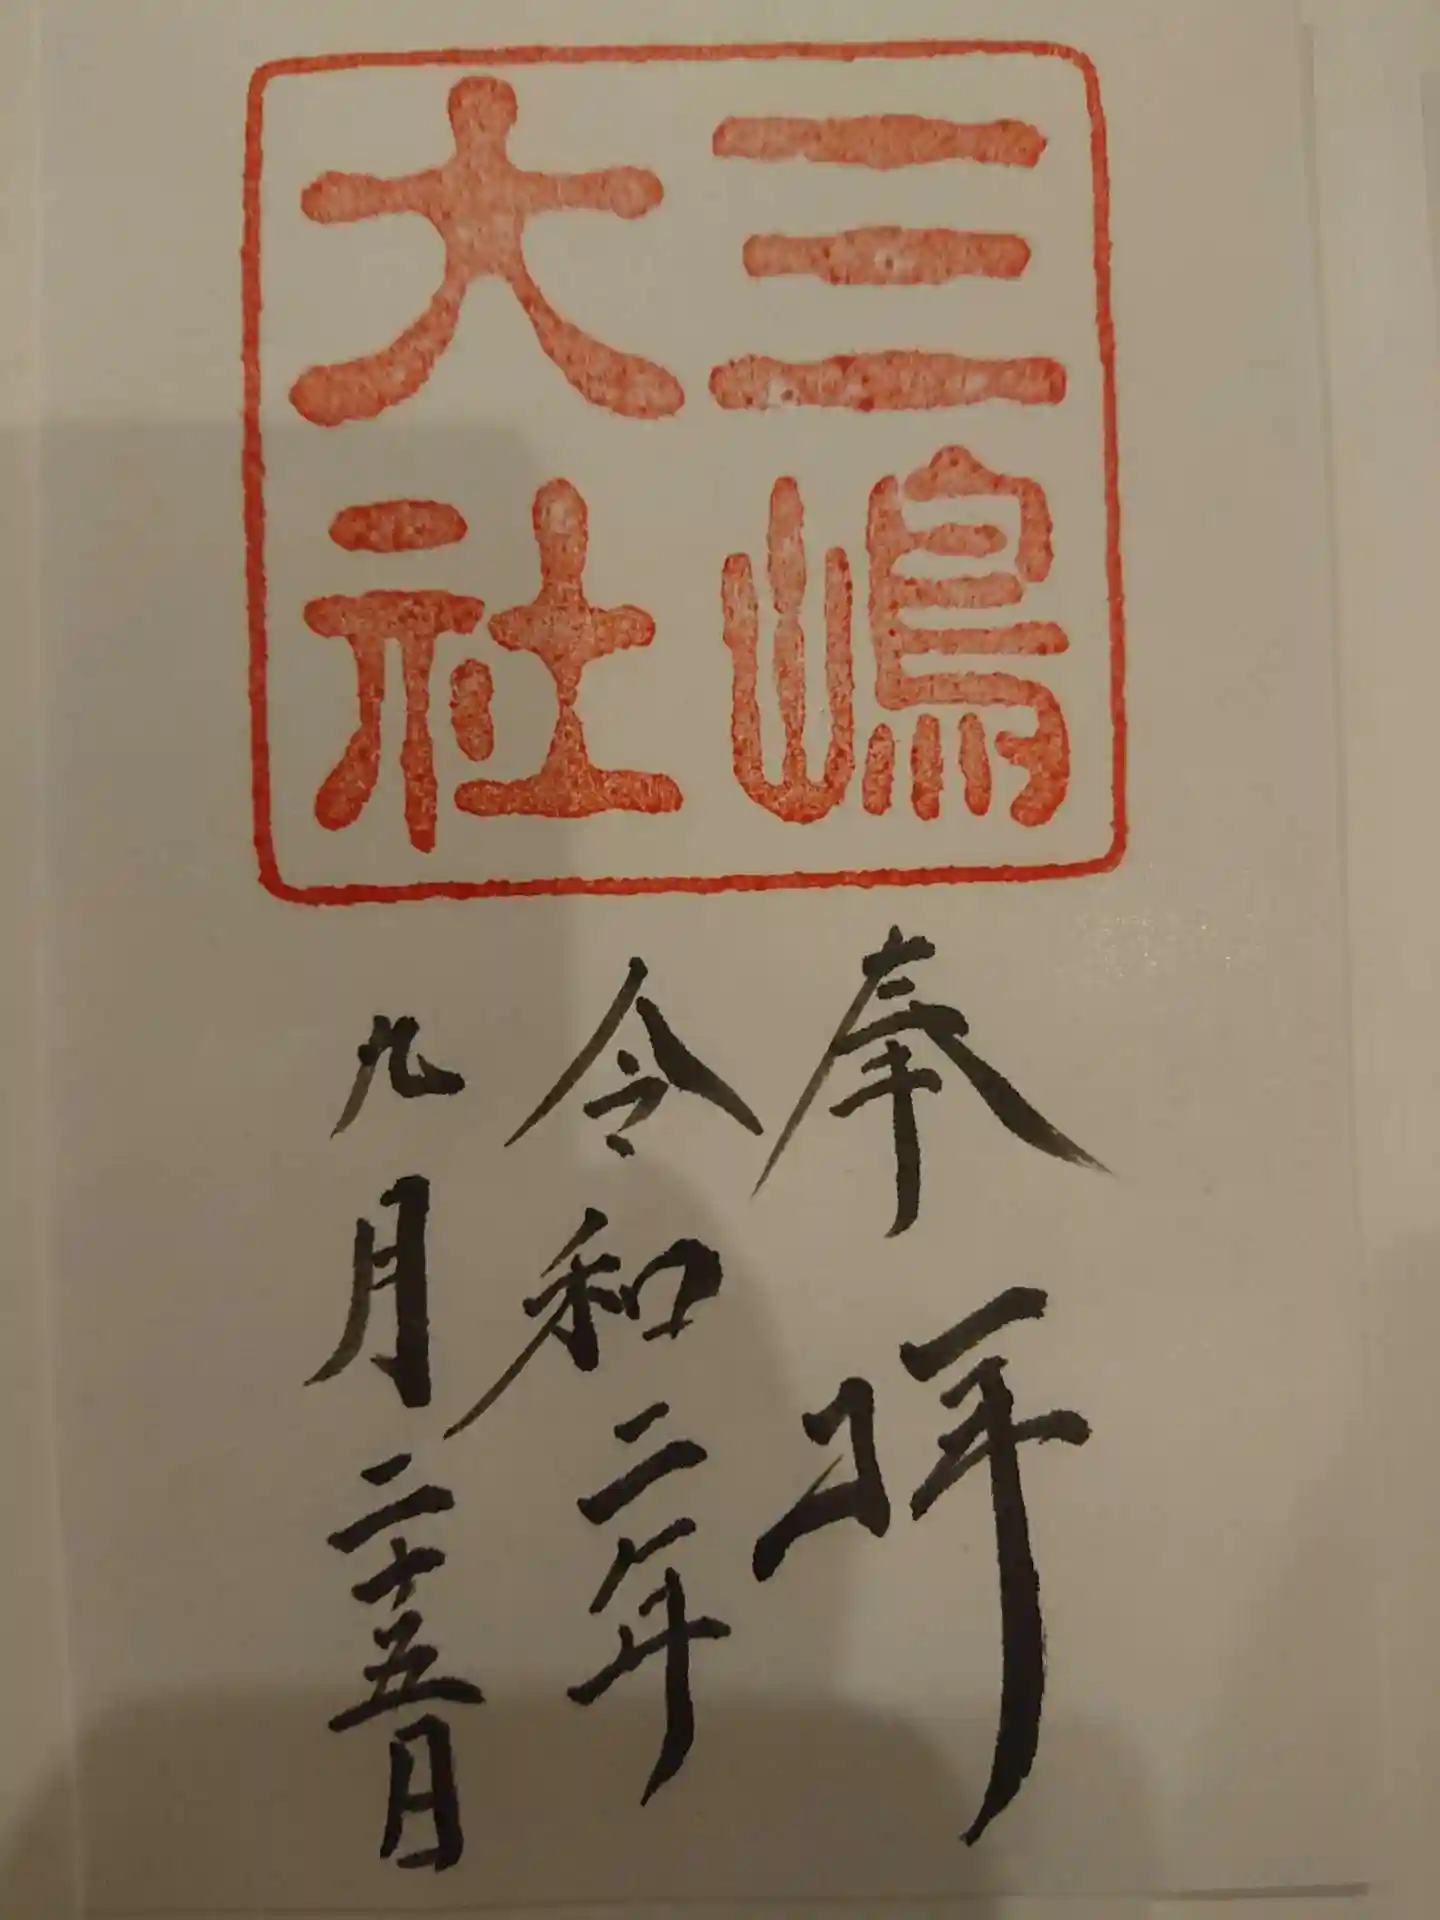 三嶋
大社
奉拝
令和二年
九月二十五日